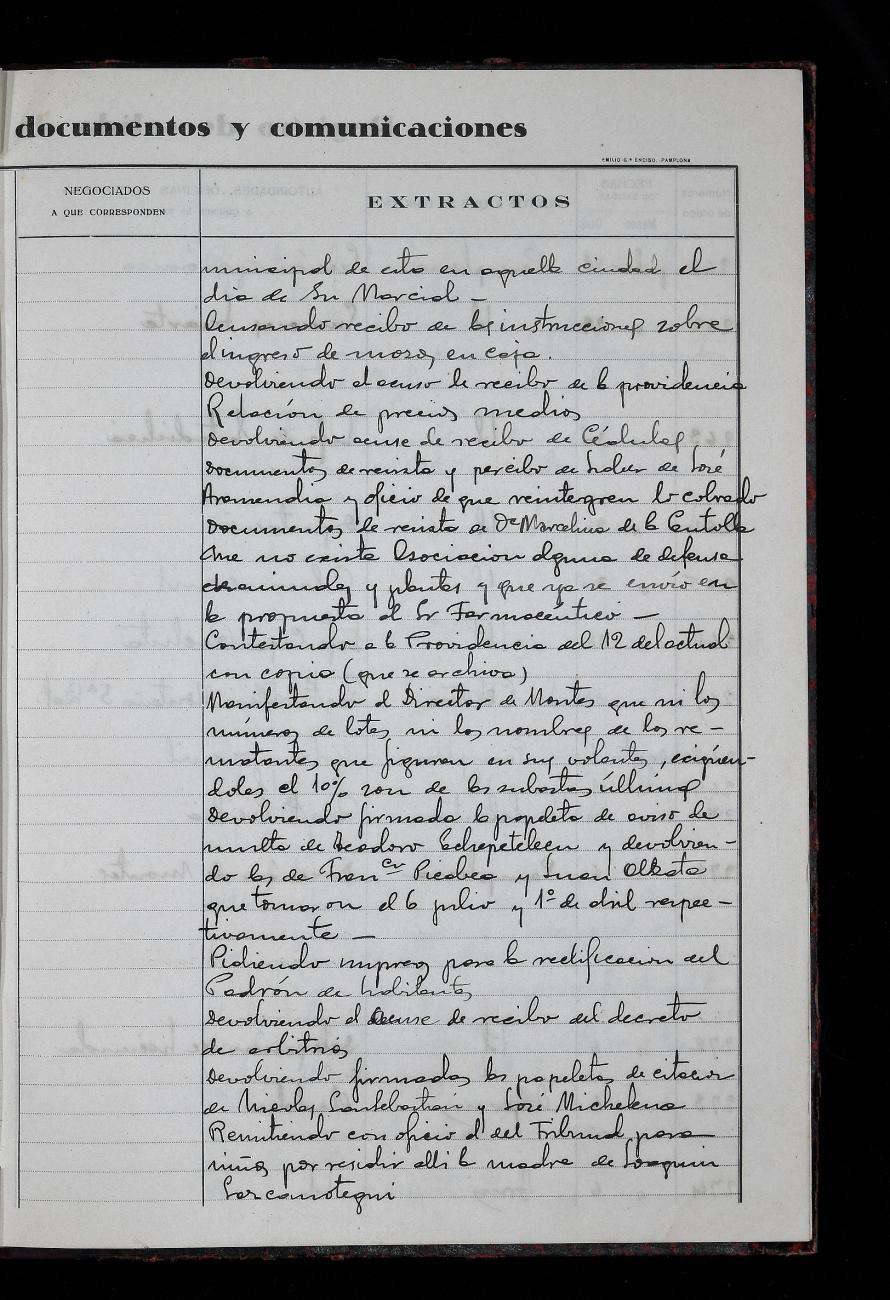 documentos y comunicaciones
EMILIO G.ª ENCISO.-PAMPLONA
NEGOCIADOS
A QUE CORRESPONDEN
EXTRACTOS
municipal de esta en aquella ciudad el
dia de San Marcial —
Acusando recibo de las instrucciones sobre
el ingreso de mozos en caja.
Devolviendo el acuse de recibo de la providencia
Relación de precios medios
Devolviendo acuse de recibo de Cédulas
Documentos de revista y percibo de haber de José
Aramendia y oficio de que reintegren lo cobrado
Documentos de revista de Dª Marcelina de la Cantolla
Que no existe Asociacion alguna de defensa
de animales y plantas y que ya se envío en
la propuesta al Sr Farmacéutico —
Contestando a la Providencia del 12 del actual
con copia (que se archiva)
Manifestando al Director de Montes que ni los
números de lotes, ni los nombres de los re-
matantes que figuran en sus volantes, exigien-
doles el 10% son de las subastas últimas
Devolviendo firmada la papeleta de aviso de
multa de Teodoro Echepeteleen y devolvien-
do las de Franco Picabea y Juan
que tomaron el 6 julio y 1º de abril respec-
tivamente —
Pidiendo impresos para la rectificacion del
Padrón de habitantes
Devolviendo el acuse de recibo del decreto
de arbitrios
Devolviendo firmadas las papeletas de citacion
de Nicolas Sansebastián y José Michelena
Remitiendo con oficio al del Tribunal para
niños por residir alli la madre de Joaquin